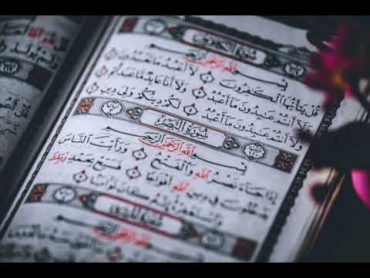 سُورَةُ الكَافِرُونَ
بِسْمِ اللَّهِ الرَّحْمَٰنِ الرَّحِيمِ
قُلْ يَٰٓأَيُّهَا الْكَٰفِرُونَ لَآ أَعْبُدُ مَا تَعْبُدُونَ
وَلَآ أَنتُمْ عَٰبِدُونَ مَآ أَعْبُدُ وَلَآ أَنَا۠ عَابِدٌ مَّا عَبَدتُّمْ
وَلَآ أَنتُمْ عَٰبِدُونَ مَآ أَعْبُدُ لَكُمْ دِينُكُمْ وَلِيَ دِينِ
سُورَةُ النَّصْرِ
بِسْمِ اللَّهِ الرَّحْمَٰنِ الرَّحِيمِ
إِذَا جَآءَ نَصْرُ اللَّهِ وَالْفَتْحُ وَرَأَيْتَ النَّاسَ
يَدْخُلُونَ فِي دِينِ اللَّهِ أَفْوَاجًا فَسَبِّحْ بِحَمْدِ رَبِّكَ
وَاسْتَغْفِرْهُ إِنَّهُ كَانَ تَوَّابًا